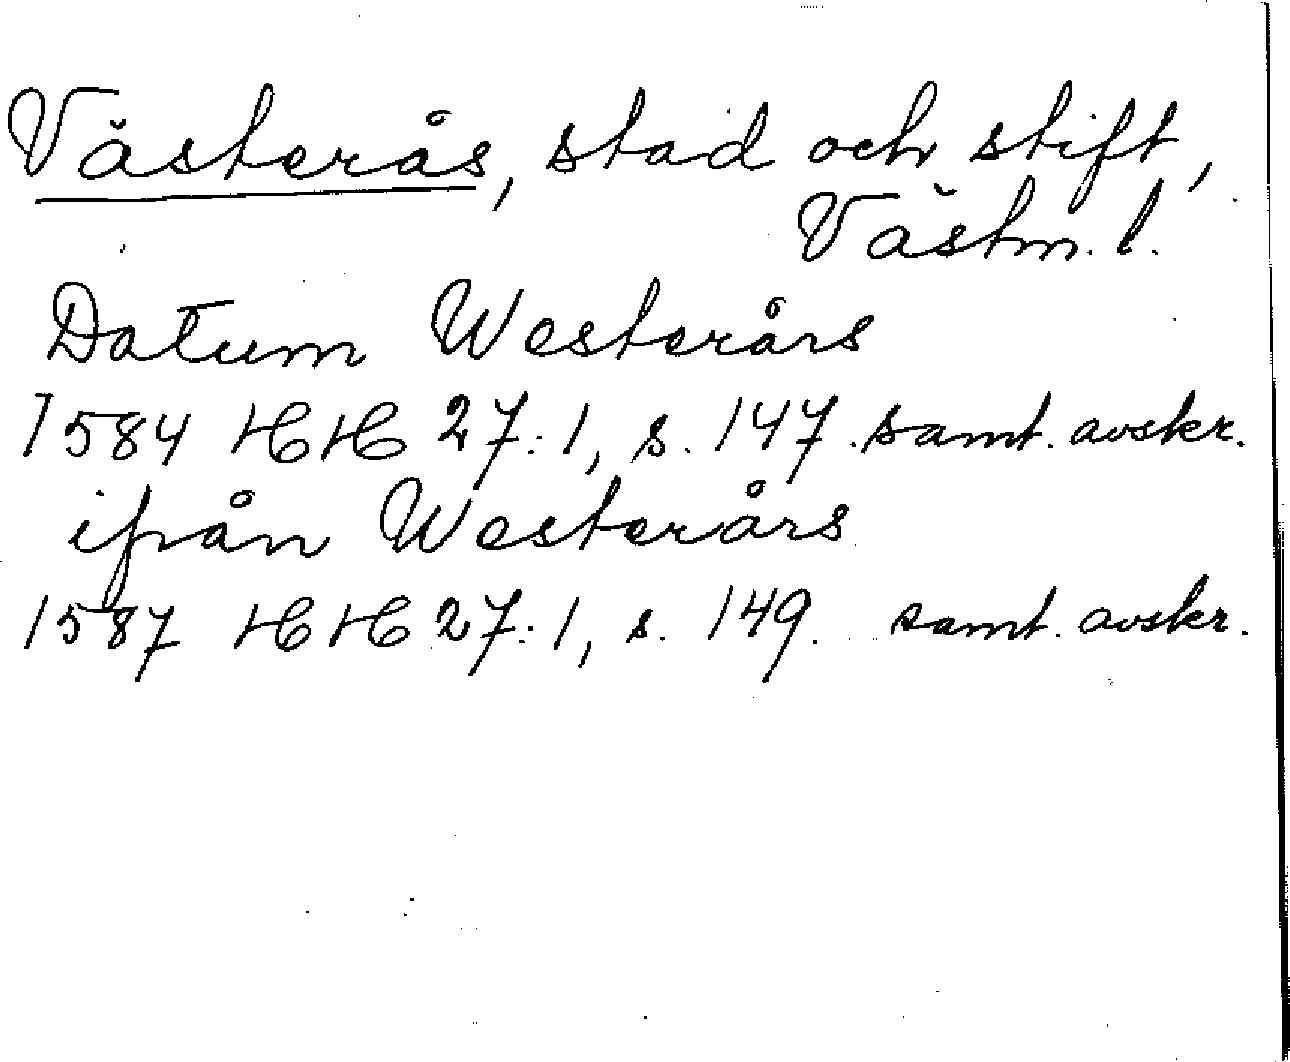 Västerås, stad och stift,
Västm. l.
Datum Westerårs
1584 HH 27:1, s. 147 samt. avskr.
ifrån Westerårs
1587 HH 27:1, s. 149. samt. avskr.